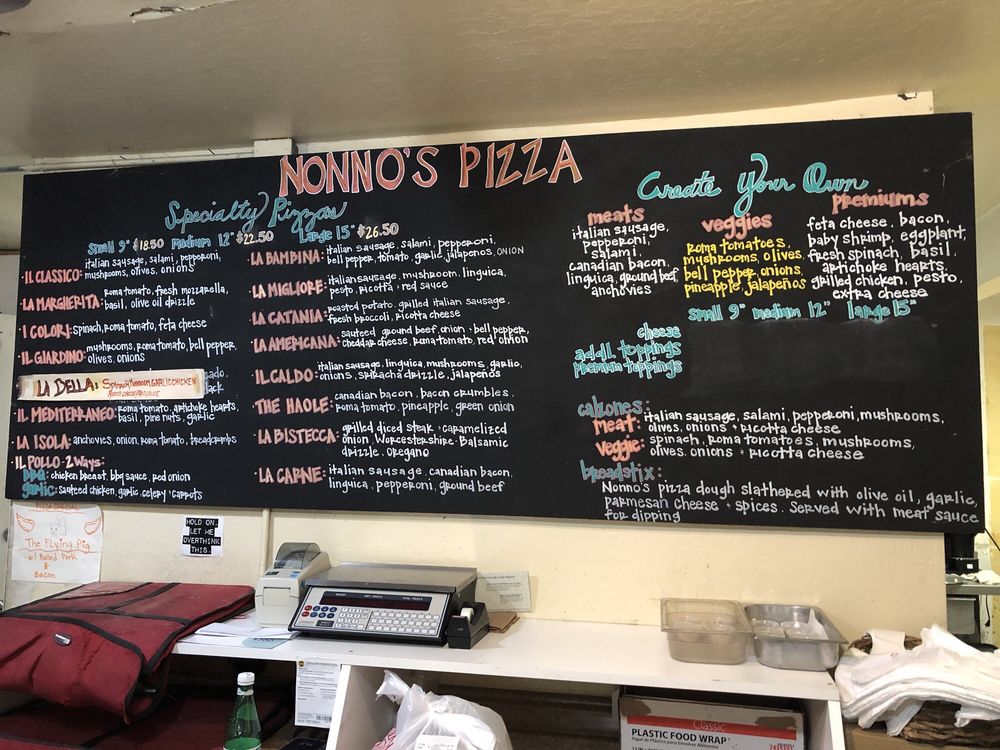 NONNO'S PIZZA
Specialty Pizzas
Small 9" $18.50 Medium 12" $22.50 Large 15" $26.50
IL CLASSICO: italian sausage, salami, pepperoni,
mushrooms, olives, onions
LA MARGHERITA: roma tomato, fresh mozzarella,
basil, olive oil drizzle
I COLORI: spinach, roma tomato, feta cheese
IL GIARDINO: mushrooms, roma tomato, bell pepper,
olives, onions
LA BELLA: SPINACH, GARLIC CHICKEN
IL MEDITERRANEO: roma tomato, artichoke hearts,
basil, pine nuts, garlic
LA ISOLA: anchovies, onion, roma tomato, breadcrumbs
IL POLLO - 2 Ways:
BBQ: chicken breast, bbq sauce, red onion
garlic: sauteed chicken, garlic, celery + carrots
LA BAMBINA: italian sausage, salami, pepperoni,
bell pepper, tomato, garlic, jalapenos, ONION
LA MIGLIORE: italian sausage, mushroom, linguica,
pesto, ricotta + red sauce
LA CATANIA: roasted potato, grilled italian sausage,
fresh broccoli, ricotta cheese
LA AMERICANA: sauteed ground beef, onion + bell pepper,
cheddar cheese, roma tomato, red onion
IL CALDO: italian sausage, linguica, mushrooms, garlic,
onions, sriracha drizzle, jalapeños
THE HAOLE: canadian bacon, bacon crumbles,
roma tomato, pineapple, green onion
LA BISTECCA: grilled diced steak + caramelized
onion, Worcestershire - Balsamic
drizzle, oregano
LA CARNE: italian sausage, canadian bacon,
linguica, pepperoni, ground beef
Create Your Own
meats
italian sausage,
pepperoni,
salami,
canadian bacon,
linguica, ground beef
anchovies
veggies
roma tomatoes,
mushrooms, olives,
bell pepper, onions,
pineapple, jalapeños
premiums
feta cheese, bacon,
baby shrimp, eggplant,
fresh spinach, basil,
artichoke hearts,
grilled chicken, pesto,
extra cheese
small 9" medium 12" large 15"
cheese
addl. toppings
premium toppings
calzones:
meat: italian sausage, salami, pepperoni, mushrooms,
olives, onions + ricotta cheese
veggie: spinach, roma tomatoes, mushrooms,
olives, onions + ricotta cheese
breadstix:
Nonno's pizza dough slathered with olive oil, garlic,
parmesan cheese + spices. Served with meat sauce
for dipping
PIZZA SPECIAL
The Flying Pig
w/ Pulled Pork
&
Bacon
HOLD ON,
LET ME
OVERTHINK
THIS.
Classic
PLASTIC FOOD WRAP